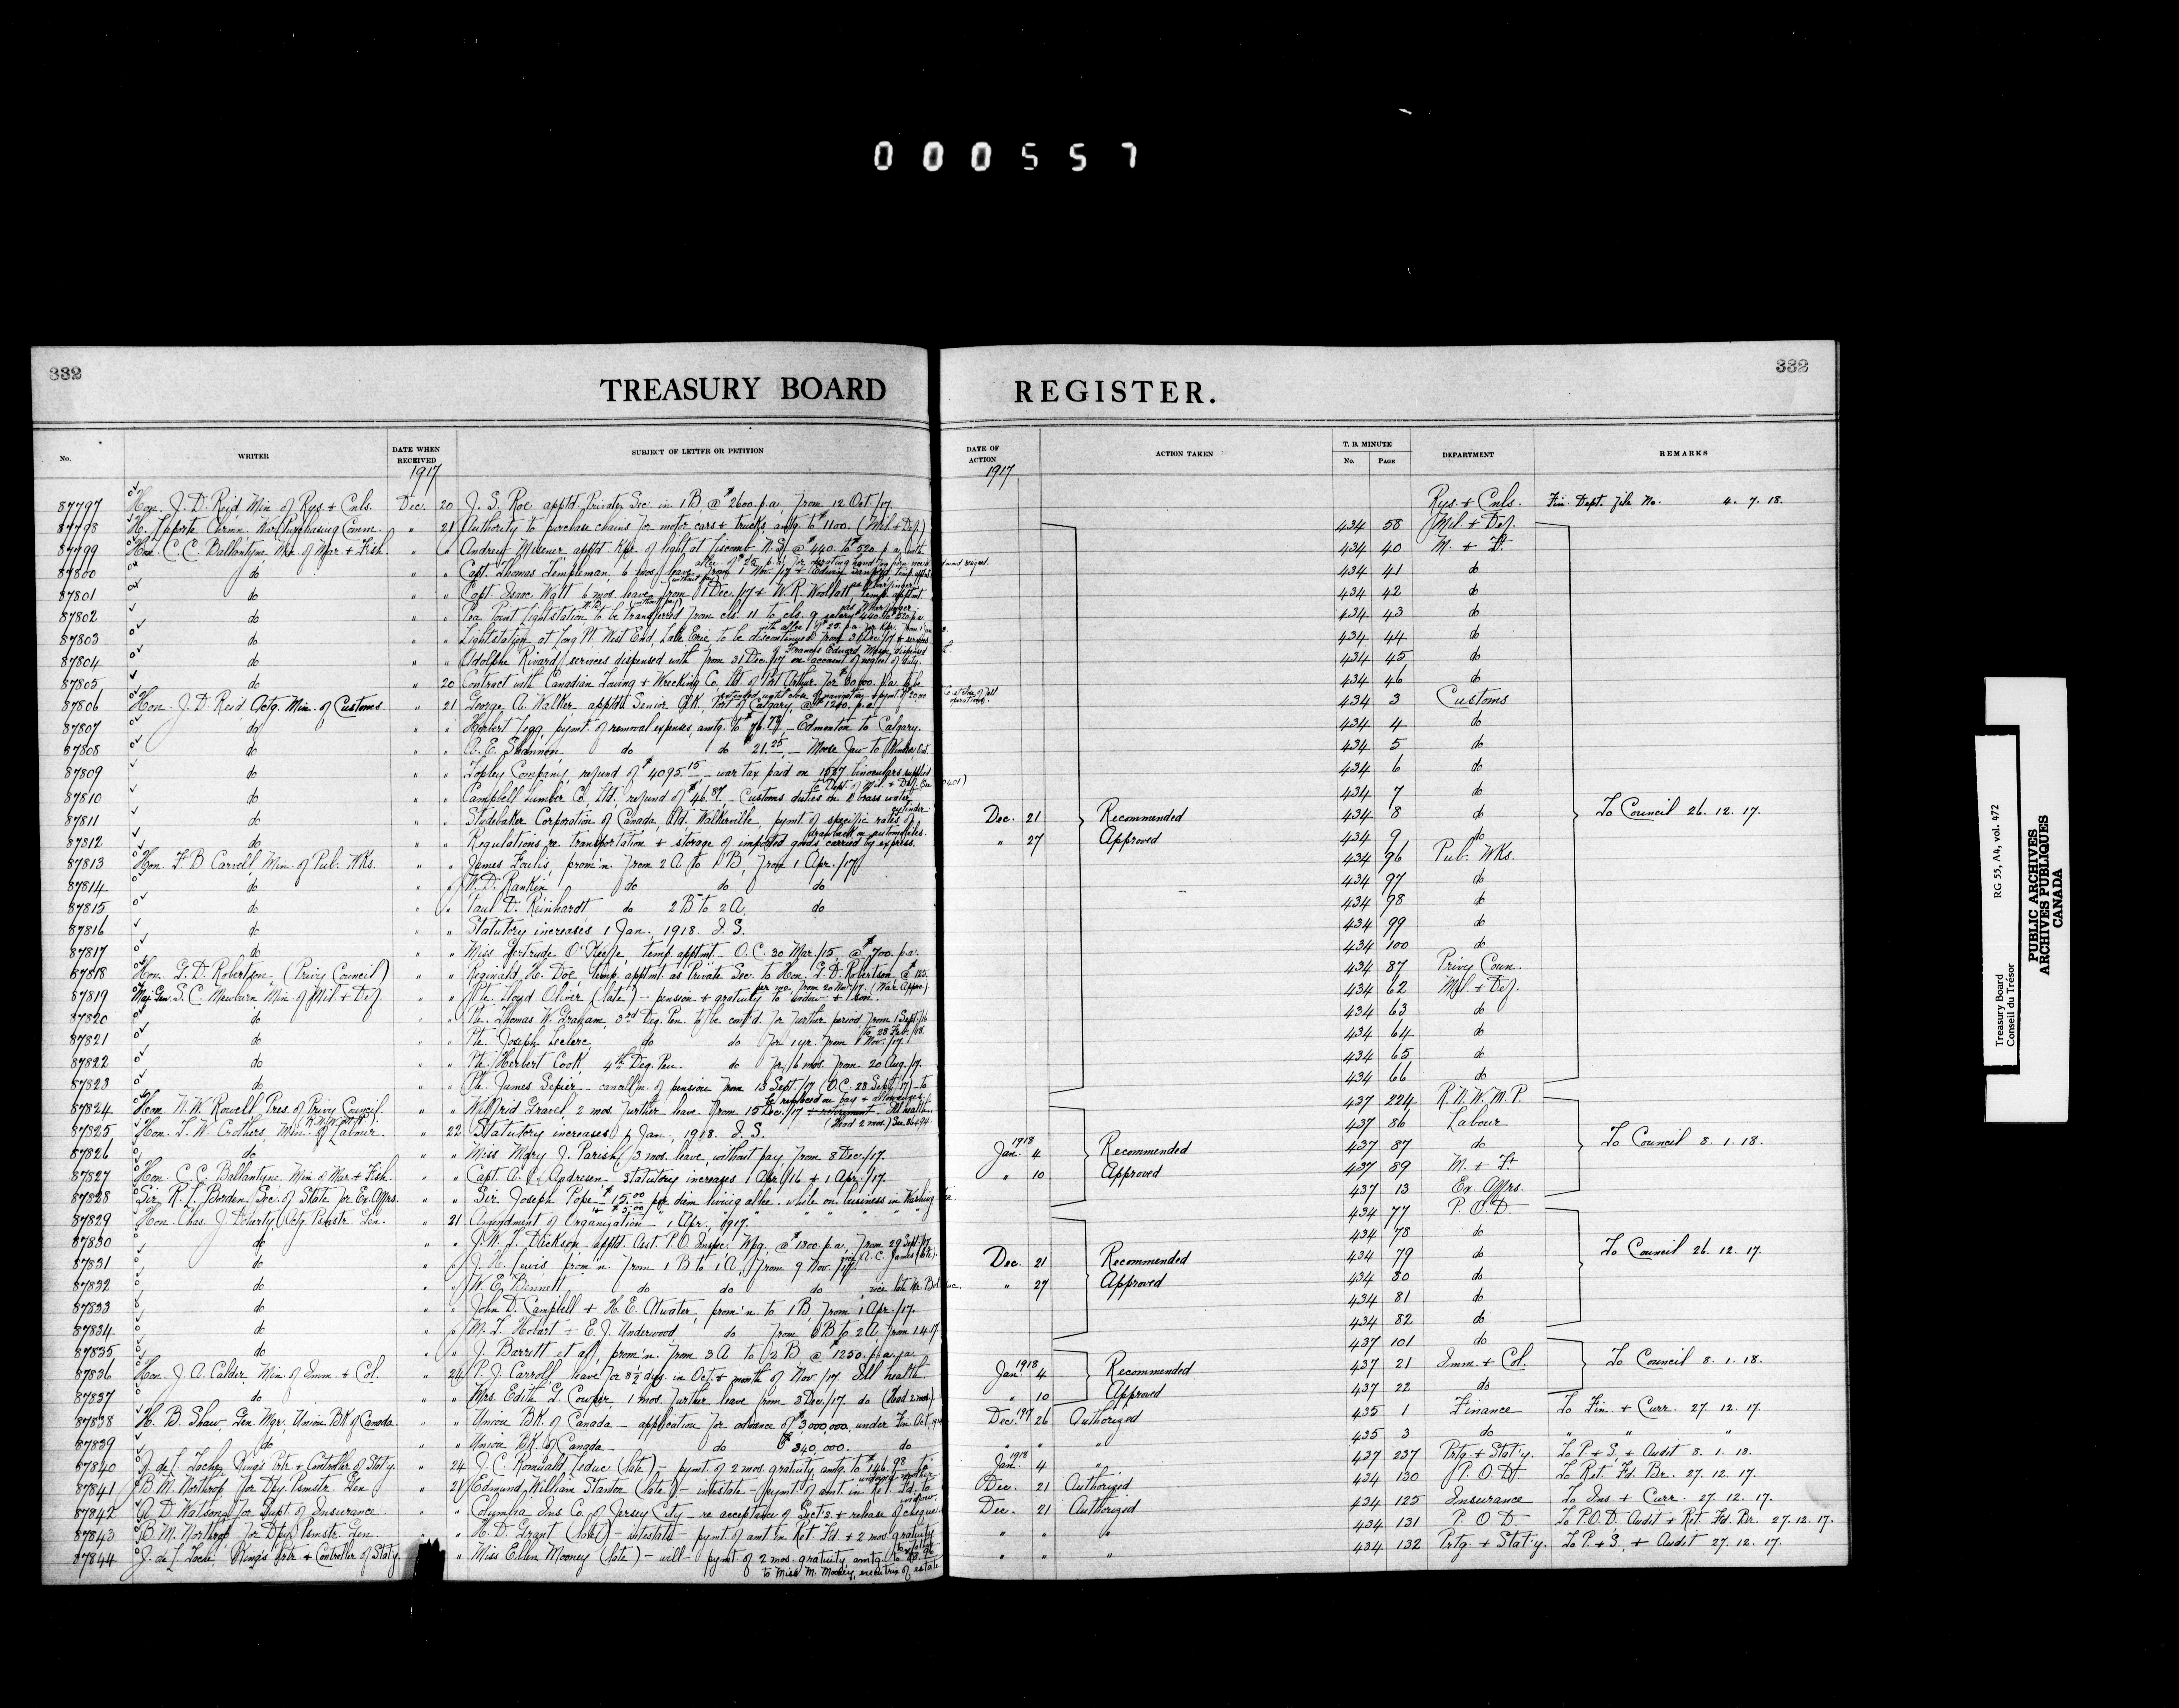 000557
332
332
TREASURY BOARD REGISTER.
No. WRITER DATE WHEN RECEIVED SUBJECT OF LETTER OR PETITION DATE OF ACTION ACTION TAKEN T. B. MINUTE No. PAGE DEPARTMENT REMARKS
1917 1917
87797 Hon. J. D. Reid Min. of Rys. + Cnls. Dec. 20 J. S. Roe apptd. Private Sec. in 1 B, @ $2600. p.a. from 12 Oct./17. Rys. + Cnls. Fin. Dept. File No. 4. 7. 18.
87798 H. Laporte Chrmn. War Purchasing Comm. " 21 Authority to purchase chains for motor cars + trucks amtg. to $1100. (Mil. + Def.) 434 58 Mil + Def.
87799 Hon. C. C. Ballantyne Min. of Mar. + Fish. " " Andrew Misener apptd Kpr. of light at Liscomb N.S. @ $440. to $520 p.a. with 434 40 M. + F.
allce. of $25. p.a. for operating hand fog horn
87800 do " " Capt. Thomas Templeman, 6 mos. leave from 1 Nov. /17 + 434 41 do
(without pay)
87801 do " " Capt. Isaac Watt 6 mos. leave from 1 Dec./17 + W. R. Woollatt temp. apptmt 434 42 do
(without pay)
87802 do " " Pea Point Lightstation to be transferred from cls. 11 to cls. 9 salary $440 to $520 p.a. 434 43 do
87803 do " " Lightstation at Long Pt. West End, Lake Erie to be discontinued from 31 Dec./17 + services 434 44 do
of Francis Edward Mason, dispensed
87804 do " " Adolphe Rivard services dispensed with from 31 Dec./17 on account of neglect of duty. 434 45 do
87805 do " 20 Contract with Canadian Towing + Wrecking Co. Ltd. of Port Arthur for $30,000. p.a. to be 434 46 do
extended until close of navigation + pymt. of 20,000
87806 Hon. J. D. Reid Actg. Min. of Customs " 21 George A. Walker apptd. Senior Clk., Port of Calgary @ $1200. p.a. 434 3 Customs
87807 do " " Herbert Legg, pymt. of removal expenses, amtg. to $76.78, - Edmonton to Calgary. 434 4 do
87808 do " " A. E. Shannon do do $21.25 - Moose Jaw to 434 5 do
87809 do " " Topley Company, refund of $4095.15 - war tax paid on 1827 binoculars supplied 434 6 do
to Dept. of Mil. + Def.
87810 do " " Campbell Lumber Co., Ltd. refund of $46.87, - Customs duties on brass water 434 7 do
cylinder.
87811 do " " Studebaker Corporation of Canada, Ltd. Walkerville, pymt. of specific rates of Dec. 21 Recommended 434 8 do To Council 26. 12. 17.
drawback on automobiles.
87812 do " " Regulations re transportation + storage of imported goods carried by express. " 27 Approved 434 9 do
87813 Hon. F. B. Carvell Min. of Pub. Wks. " " James Foulis, prom'n. from 2 A to 1 B, from 1 Apr./17 434 96 Pub. Wks.
87814 do " " W. D. Rankin do do do 434 97 do
87815 do " " Paul D. Reinhardt do 2 B to 2 A. do 434 98 do
87816 do " " Statutory increases 1 Jan., 1918. I. S. 434 99 do
87817 do " " Miss Gertrude O'Keefe, temp. apptmt. O. C. 30 Mar./15 @ $700. p.a. 434 100 do
87818 Hon. G. D. Robertson (Privy Council) " " Reginald H. Doe, temp. apptmt as Private Sec. to Hon. G. D. Robertson @ $125. 434 87 Privy Coun.
per mo. from 20 Nov./17. (War Appro.)
87819 Maj. Gen. S. C. Mewburn Min. of Mil + Def. " " Pte. Lloyd Oliver (late) - pension + gratuity to widow + 1 son. 434 62 Mil + Def.
87820 do " " Pte. Thomas W. Graham, 3rd Deg. Pen. to be cont'd. for further period from 1 Sept./16 434 63 do
to 28 Feb. /18.
87821 do " " Pte. Joseph Leclerc, do do for 1 yr. from 1 Nov. /17. 434 64 do
87822 do " " Pte. Herbert Cook, 4th Deg. Pen. do for 6 mos. from 20 Aug./17. 434 65 do
87823 do " " Pte. James Sepier - cancell'n. of pension from 13 Sept./17 (O.C. 28 Sept./17) - to 434 66 do
be replaced on pay + allowances.
87824 Hon. N. W. Rowell Pres. of Privy Council. " " Wilfrid Gravel, 2 mos. further leave from 15 Dec./17 + retirement - Ill health. 437 224 R. N. W. M. P.
(R.N.W.M.P.) (Had 2 mos.)
87825 Hon. T. W. Crothers, Min. of Labour. " 22 Statutory increases 1 Jan., 1918. I. S. 437 86 Labour
87826 do " " Miss Mary J. Parish, 3 mos. leave, without pay, from 8 Dec./17. 1918 Jan. 4 Recommended 437 87 do To Council 8. 1. 18.
87827 Hon. C. C. Ballantyne Min. of Mar. + Fish. " " Capt. A. C. Andresen Statutory increases 1 Apr./16 + 1 Apr./17. " 10 Approved 437 89 M. + F.
87828 Sir R. L. Borden Sec. of State for Ex. Affrs. " " Sir Joseph Pope $15.00 per diem living allce. while on business in Washington. 437 13 Ex. Affrs.
87829 Hon. Chas. J. Doherty Actg. Pmstr. Gen. " 21 Amendment of Organization 1 Apr., 1917. 434 77 P. O. D.
87830 do " " J. W. T. Dickson apptd. Asst. P.O. Inspr., Wpg. @ $1300. p.a. from 29 Sept./17. 434 78 do
vice A. C. James (late).
87831 do " " J. H. Lewis prom'n. from 1 B to 1 A, from 9 Nov. /17 Dec. 21 Recommended 434 79 do To Council 26. 12. 17.
87832 do " " W. E. Bennett do do do, vice late Mr. " 27 Approved 434 80 do
87833 do " " John D. Campbell + H. E. Atwater, prom'n. to 1 B, from 1 Apr./17. 434 81 do
87834 do " " M. T. Hobart + E. J. Underwood, do from B to 2 A, from 1.4.17. 434 82 do
87835 do " " J. Barrett et al, prom'n. from 3 A to 2 B @ $1250. p.a. 437 101 do
87836 Hon. J. A. Calder, Min. of Imm. + Col. " 24 P. J. Carroll, leave for 8½ dys. in Oct. + month of Nov. /17. Ill health. 1918 Jan. 4 Recommended 437 21 Imm. + Col. To Council 8. 1. 18.
87837 do " " Mrs. Edith G. Cowper, 1 mos. further leave from 3 Dec./17. do (Had 2 mos.) " 10 Approved 437 22 do
87838 H. B. Shaw, Gen. Mgr. Union Bk of Canada " " Union Bk. of Canada - application for advance of $3,000,000. under Fin. Act, 1914 Dec. 1917 26 Authorized 435 1 Finance To Fin. + Curr. 27. 12. 17.
87839 do " " Union Bk. of Canada do $340,000. do " " " 435 3 do " " "
87840 J. de L. Taché, King's Prtr. + Controller of Stat'y. " 24 J. C. Romuald Leduc (late) - pymt. of 2 mos. gratuity, amtg. to $146.98 to 1918 Jan. 4 " 437 237 Prtg. + Stat'y. To P. + S. + Audit 8. 1. 18.
87841 B. M. Northrop for Dpy. Pmstr. Gen " 21 Edmund William Stanton (late) - intestate - pymt. of amt. in Ret. Fd. to Dec. 21 Authorized 434 130 P. O. D. To Ret. Fd. Br. 27. 12. 17.
widow.
87842 A. D. Watson for Supt. of Insurance " " Columbia Ins. Co. of Jersey City - re acceptance of Sect's. + release of cheque Dec. 21 Authorized 434 125 Insurance To Ins + Curr. 27. 12. 17.
87843 B. M. Northrop for Dpy. Pmstr. Gen. " " H. D. Grant (late) - intestate - pymt of amt in Ret. Fd. + 2 mos. gratuity " " " 434 131 P. O. D. To P.O.D. Audit + Ret. Fd. Br. 27. 12. 17.
87844 J. de L. Taché, King's Prtr. + Controller of Stat'y. " Miss Ellen Mooney (late) - will - pymt of 2 mos. gratuity, amtg. to " " " 434 132 Prtg. + Stat'y. To P. + S. + Audit 27. 12. 17.
to Miss M. Mooney, executrix of estate
Treasury Board RG 55, A4, vol. 472
Conseil du Trésor
PUBLIC ARCHIVES
ARCHIVES PUBLIQUES
CANADA